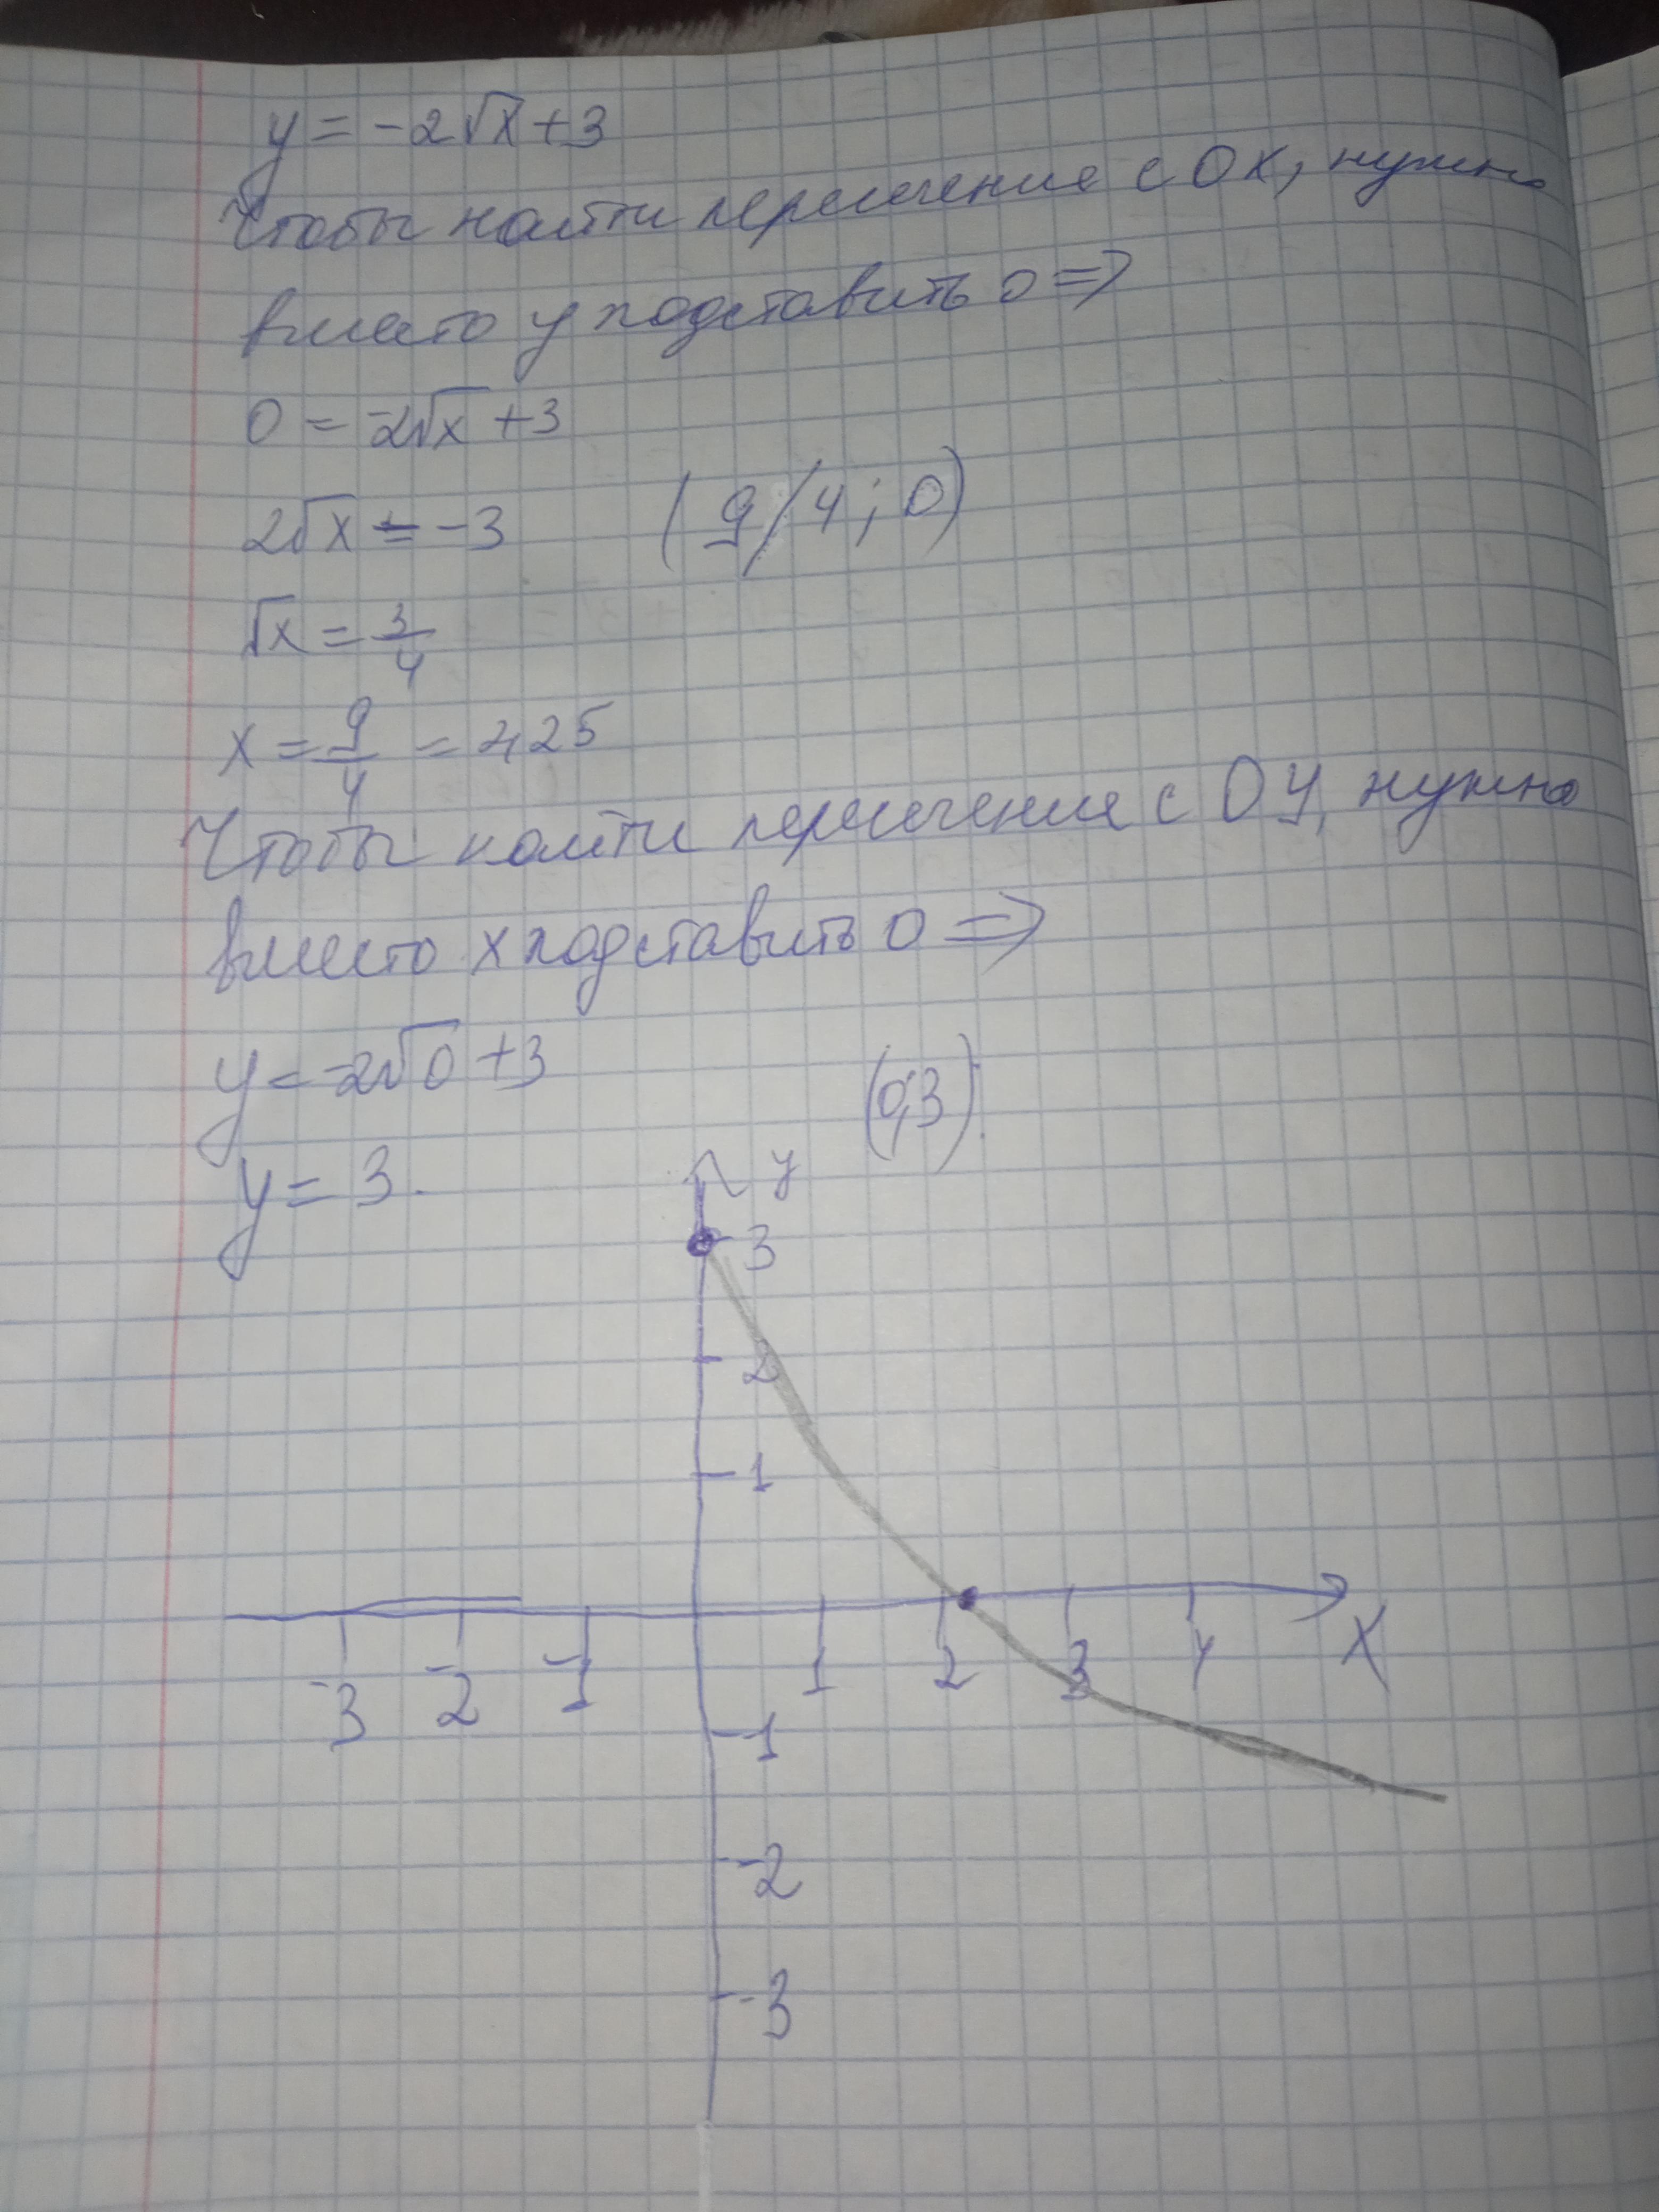 y = -2√x + 3
Чтобы найти пересечение с OX, нужно
вместо y подставить 0 =>
0 = -2√x + 3
2√x = -3 (9/4; 0)
√x = 3/4
x = 9/4 = 2,25
Чтобы найти пересечение с OY, нужно
вместо x подставить 0 =>
y = -2√0 + 3
(0;3)
y = 3.
y
3
2
1
-3 -2 -1 1 2 3 4 X
-1
-2
-3